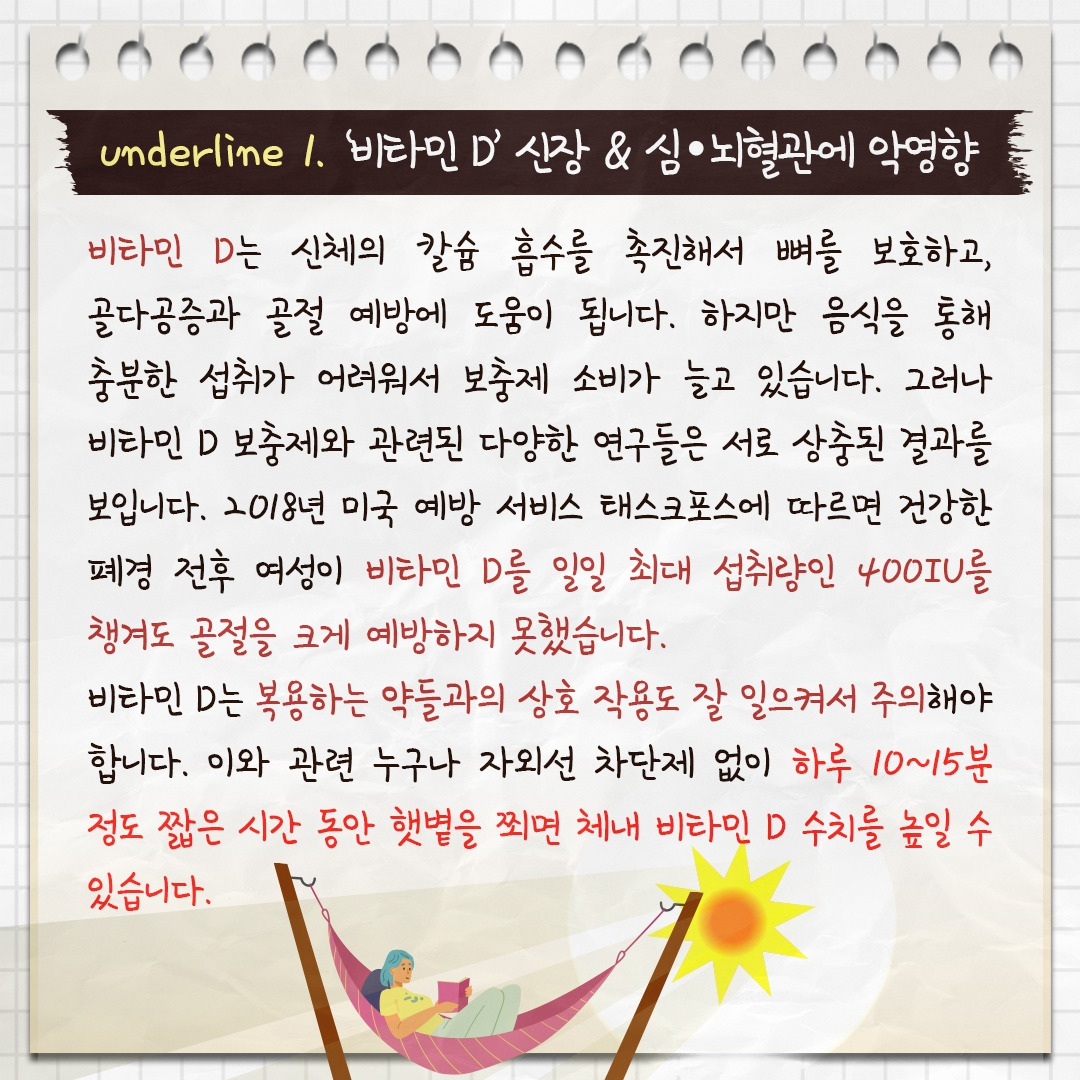 underline 1. '비타민 D' 신장 & 심•뇌혈관에 악영향
비타민 D는 신체의 칼슘 흡수를 촉진해서 뼈를 보호하고,
골다공증과 골절 예방에 도움이 됩니다. 하지만 음식을 통해
충분한 섭취가 어려워서 보충제 소비가 늘고 있습니다. 그러나
비타민 D 보충제와 관련된 다양한 연구들은 서로 상충된 결과를
보입니다. 2018년 미국 예방 서비스 태스크포스에 따르면 건강한
폐경 전후 여성이 비타민 D를 일일 최대 섭취량인 400IU를
챙겨도 골절을 크게 예방하지 못했습니다.
비타민 D는 복용하는 약들과의 상호 작용도 잘 일으켜서 주의해야
합니다. 이와 관련 누구나 자외선 차단제 없이 하루 10~15분
정도 짧은 시간 동안 햇볕을 쬐면 체내 비타민 D 수치를 높일 수
있습니다.